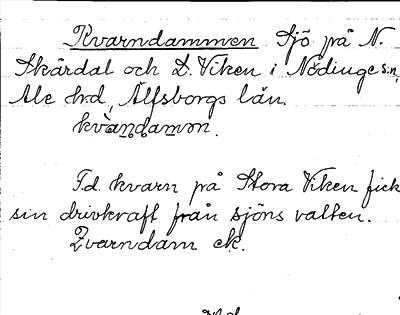 Kvarndammen Sjö på N.
Skårdal och D. Viken i Nödinge sn,
Ale hrd, Älfsborgs län.
kvàn̥damm.
F.d. kvarn på Stora Viken fick
sin drivkraft från sjöns vatten.
Kvarndam ek.